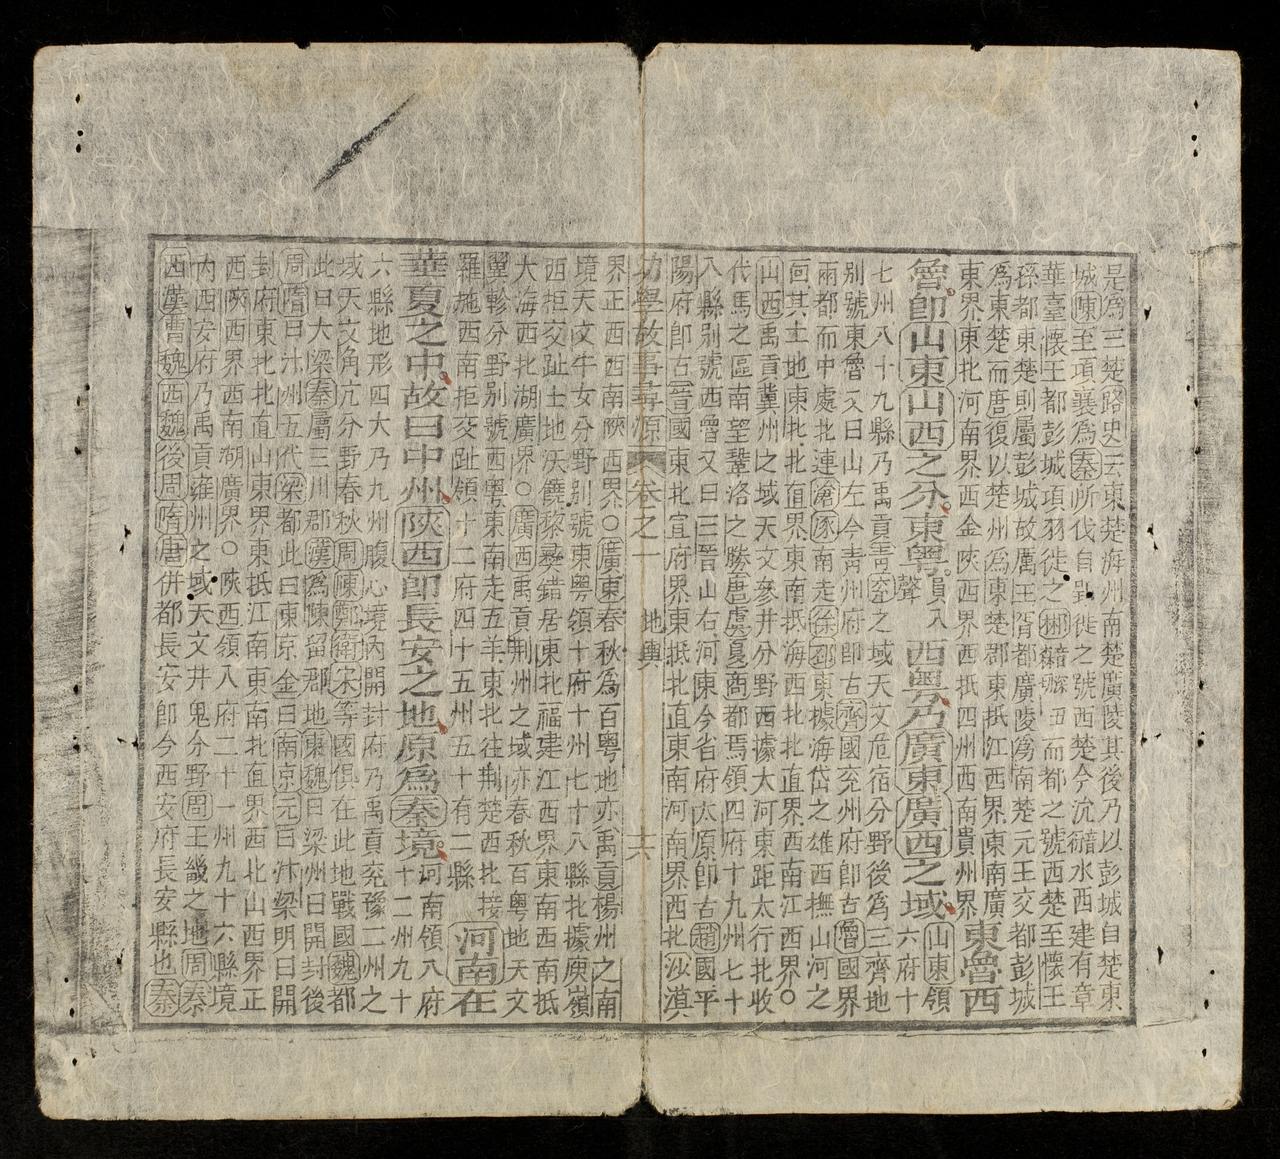 是爲三楚路史云東楚海州南楚廣陵其後乃以彭城自楚東
城陳至項襄爲秦所伐自郢徙之號西楚今沇水西建有章
華臺懷王都彭城項羽徙之郴而都之號西楚至懷王
孫都東楚則屬彭城故厲王胥都廣陵爲南楚元王交都彭城
爲東楚而唐復以楚州爲東楚郡東抵江西界東南廣
東界東北河南界西金陝西界西抵四州西南貴州界東魯西
魯卽山東山西之分東粤西粤乃廣東廣西之域山東領六府十
七州八十九縣乃禹貢青兗之域天文危宿分野後爲三齊地
别號東魯又曰山左今青州府卽古齊國兖州府卽古魯國界
兩都而中處北連滄涿南走徐邳東據海岱之雄西撫山河之
固其土地東北北直界東南抵海西北北直界西南江西界○
山西禹貢冀州之域天文參井分野西據大河東距太行北收
代馬之區南望鞏洛之勝唐虞夏商都焉領四府十九州七十
八縣别號西魯又曰三晉山右河東今省府太原卽古趙國平
陽府卽古晉國東北宜府界東抵北直東南河南界西北汝滇
幼學故事尋源 卷之一 地輿 十六
界正西西南陝西界○廣東春秋爲百粤地亦禹貢楊州之南
境天文牛女分野别號東粤領十府十州七十八縣北據庾嶺
西拒交趾土地沃饒黎蜑錯居東北福建江西界東南西南抵
大海西北湖廣界○廣西禹貢荆州之域亦春秋百粤地天文
翼軫分野别號西粤東南走五羊東北往荆楚西北接
羅施西南拒交趾領十二府四十五州五十有二縣河南在
華夏之中故曰中州陝西卽長安之地原爲秦境河南領八府十二州九十
六縣地形四大乃九州腹心境內開封府乃禹貢兗豫二州之
域天文角亢分野春秋周陳鄭衛宋等國俱在此地戰國魏都
此曰大梁秦屬三川郡漢爲陳留郡地東魏曰梁州曰開封後
周隋曰汴州五代梁都此曰東京金曰南京元曰汴梁明曰開
封府東北北直山東界東抵江南東南北直界西北山西界正
西陝西界西南湖廣界○陝西領八府二十一州九十六縣境
內西安府乃禹貢雍州之域天文井鬼分野周王畿之地周秦
西漢曹魏西魏後周隋唐併都長安卽今西安府長安縣也秦